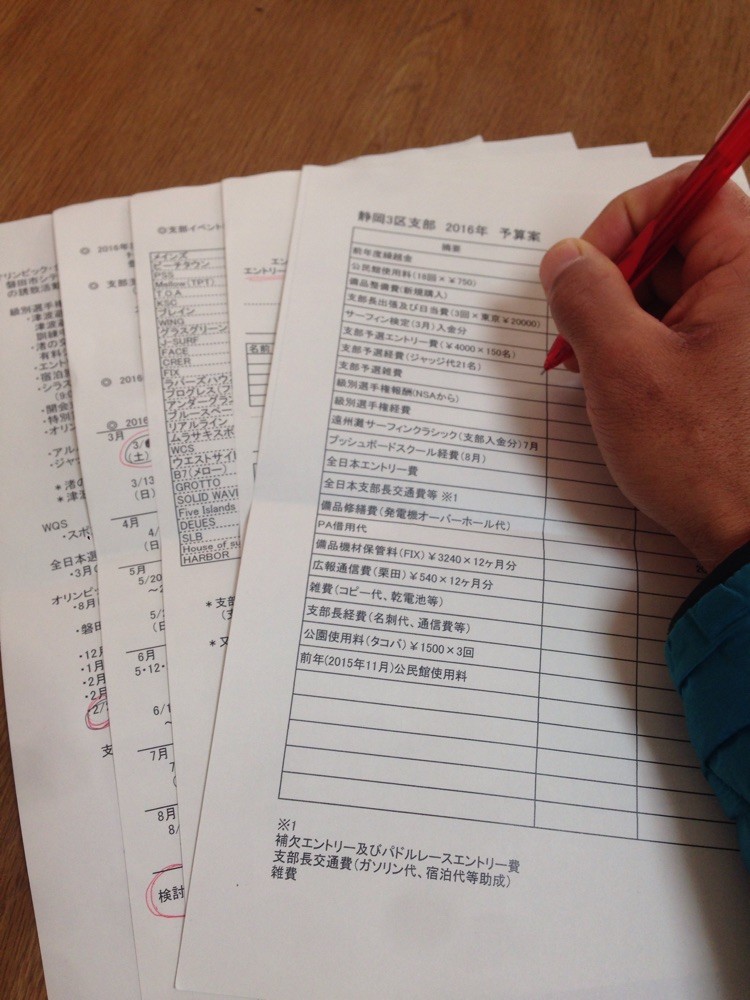 静岡3区支部 2016年 予算案
摘要
前年度繰越金
公民館使用料(19回×￥750)
備品整備費(新規購入)
支部長出張及び日当費(3回×東京￥20000)
サーフィン検定(3月)入金分
支部予選エントリー費(￥4000×150名)
支部予選経費(ジャッジ代21名)
支部予選雑費
級別選手権報酬(NSAから)
級別選手権経費
遠州灘サーフィンクラシック(支部入金分)7月
プッシュボードスクール経費(8月)
全日本エントリー費
全日本支部長交通費等 ※1
備品修繕費(発電機オーバーホール代)
PA借用代
備品機材保管料(FIX)￥3240×12ヶ月分
広報通信費(栗田)￥540×12ヶ月分
雑費(コピー代、乾電池等)
支部長経費(名刺代、通信費等)
公園使用料(タコバ)￥1500×3回
前年(2015年11月)公民館使用料
※1
補欠エントリー及びパドルレースエントリー費
支部長交通費(ガソリン代、宿泊代等助成)
雑費
エントリー
名前
◎支部イベント
メインズ
ビーチタウン
PSS
Mellow(TPT)
T.O.A
KSC
ブレイン
WING
グラスグリーン
J-SURF
FACE
CRER
FIX
ラバーズハウ
プログレス(フ
アンダーグラ
ブルースペー
リアルライン
ムラサキスポ
WCS
ウエストサイ
B7(メロー)
GROTTO
SOLID WAVE
Five Islands
DEUES
SLB
House of su
HARBOR
＊支部
＊又
◎ 2016年
◎ 支部
◎ 2016
◎ 2016
3月
3/
(土)
3/13
(日)
4月
4/
(日
5月
5/20
～2
5/
(日
6月
5・12・
6/1
～
7月
7
8月
8/
検討
オリンピック・
磐田市シテ
の誘致活動
級別選手権
・津波避
津波避
訓練
・渚の交
有料シ
・エント
・宿泊
・シラス
・開会
・特別
・オリン
・アル
・ジャッ
＊渚の
＊津波
WQS
・スポ
全日本選
・3月
オリンピ
・8月
・磐田
・12月
・1月
・2月
・2月
・2/
支